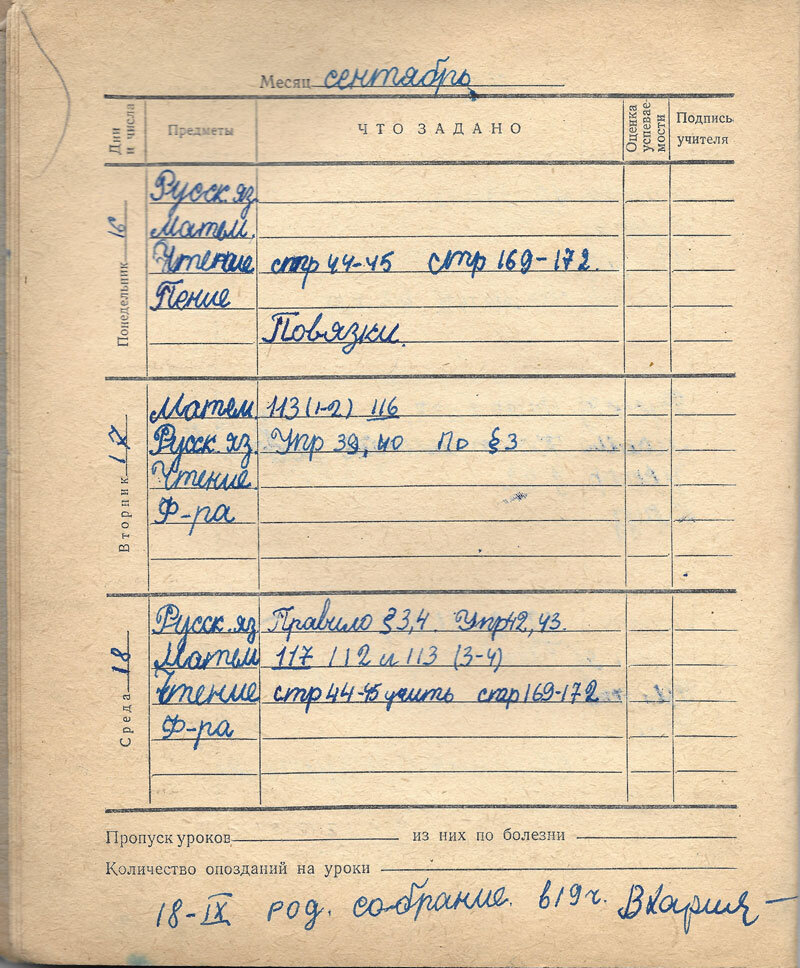 Месяц сентябрь
Дни и числа Предметы ЧТО ЗАДАНО Оценка успевае-мости Подпись учителя
Понедельник 16
Русск. яз.
Матем.
Чтение стр 44-45 стр 169-172.
Пение
Повязки.
Вторник 17
Матем. 113 (1-2) 116
Русск. яз. Упр 39, 40 по §3
Чтение.
Ф-ра
Среда 18
Русск. яз Правило §3,4. Упр 42, 43.
Матем 117 112 и 113 (3-4)
Чтение стр 44-45 учить стр 169-172
Ф-ра
Пропуск уроков из них по болезни
Количество опозданий на уроки
18-IX род. собрание. в 19 ч.